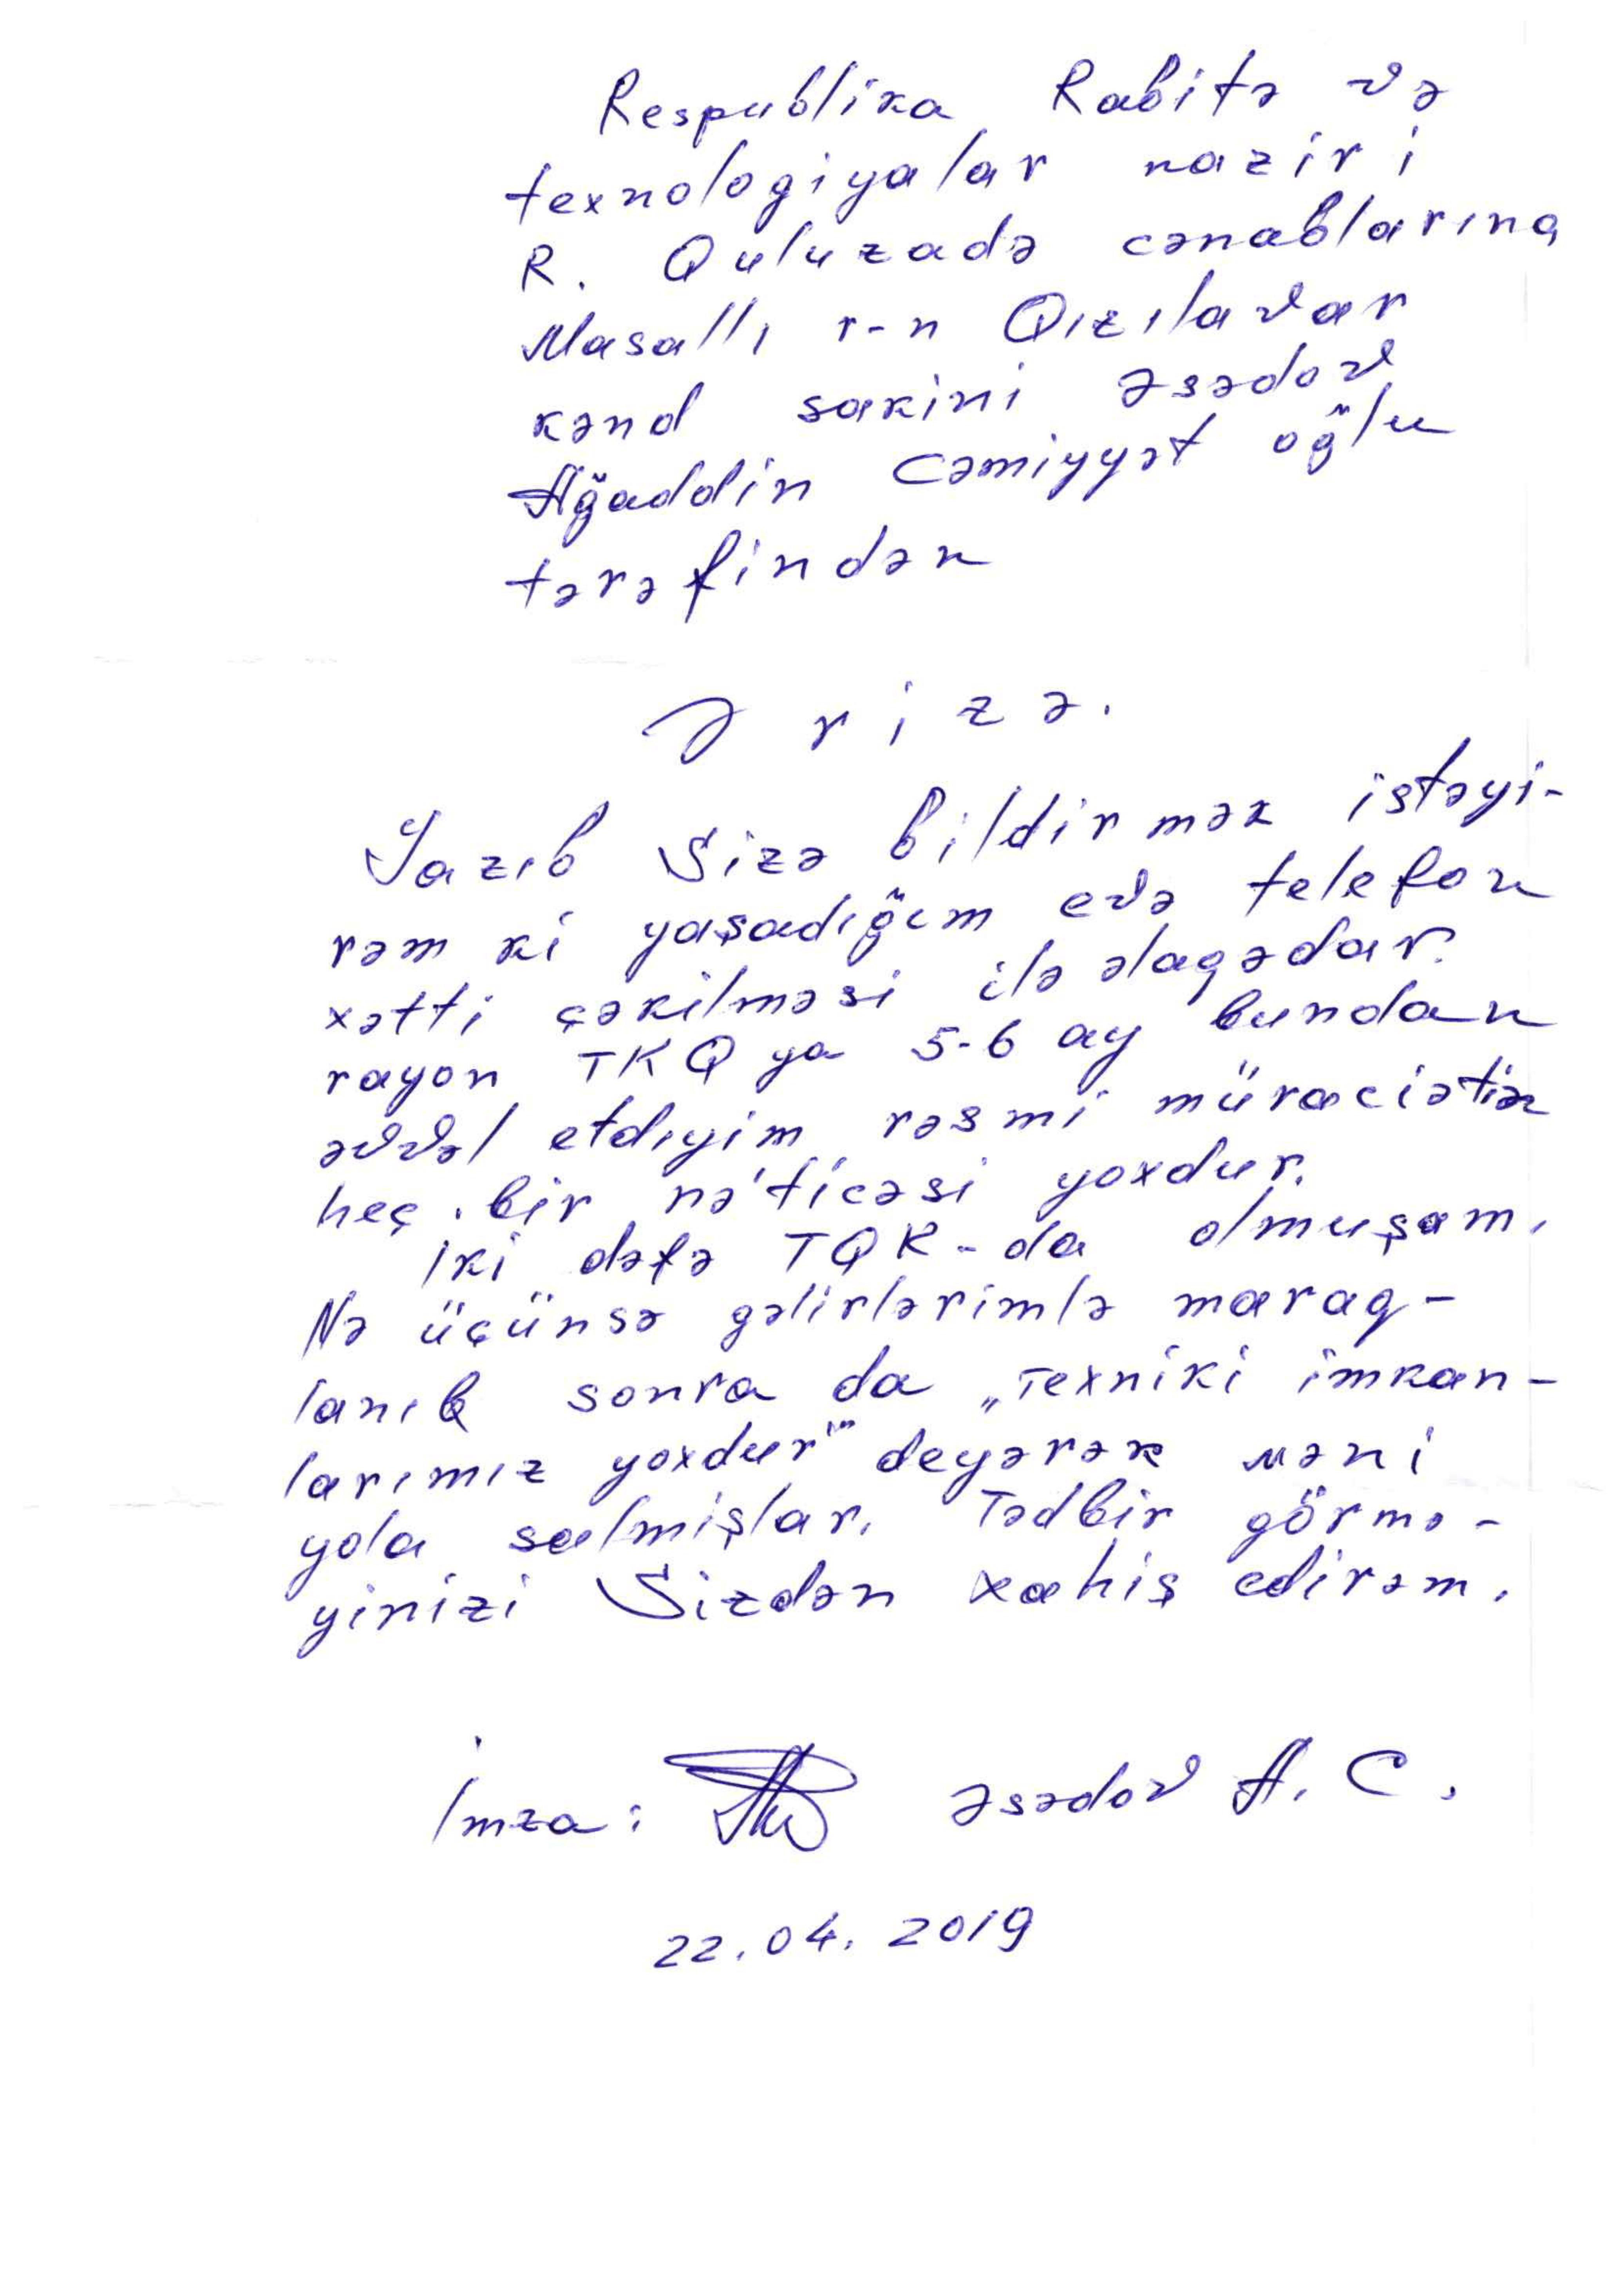 Respublika Rabitə və
texnologiyalar naziri
R. Quluzadə cənablarına
Masallı r-n Qızılavar
kənd sakini Əsədov
Ağaddin Cəmiyyət oğlu
tərəfindən
Ərizə.
Yazıb Sizə bildirmək istəyi-
rəm ki yaşadığım evə telefon
xətti çəkilməsi ilə əlaqədar
rayon TKQ ya 5-6 ay bundan
əvvəl etdıyim rəsmi müraciətin
heç bir nə'ticəsi yoxdur.
İki dəfə TQK-da olmuşam.
Nə üçünsə gəlirlərimlə maraq-
lanıb sonra da „Texniki imkan-
larımız yoxdur" deyərək məni
yola salmışlar. Tədbir görmə-
yinizi Sizdən xahiş edirəm.
İmza: Əsədov A. C.
22.04.2019